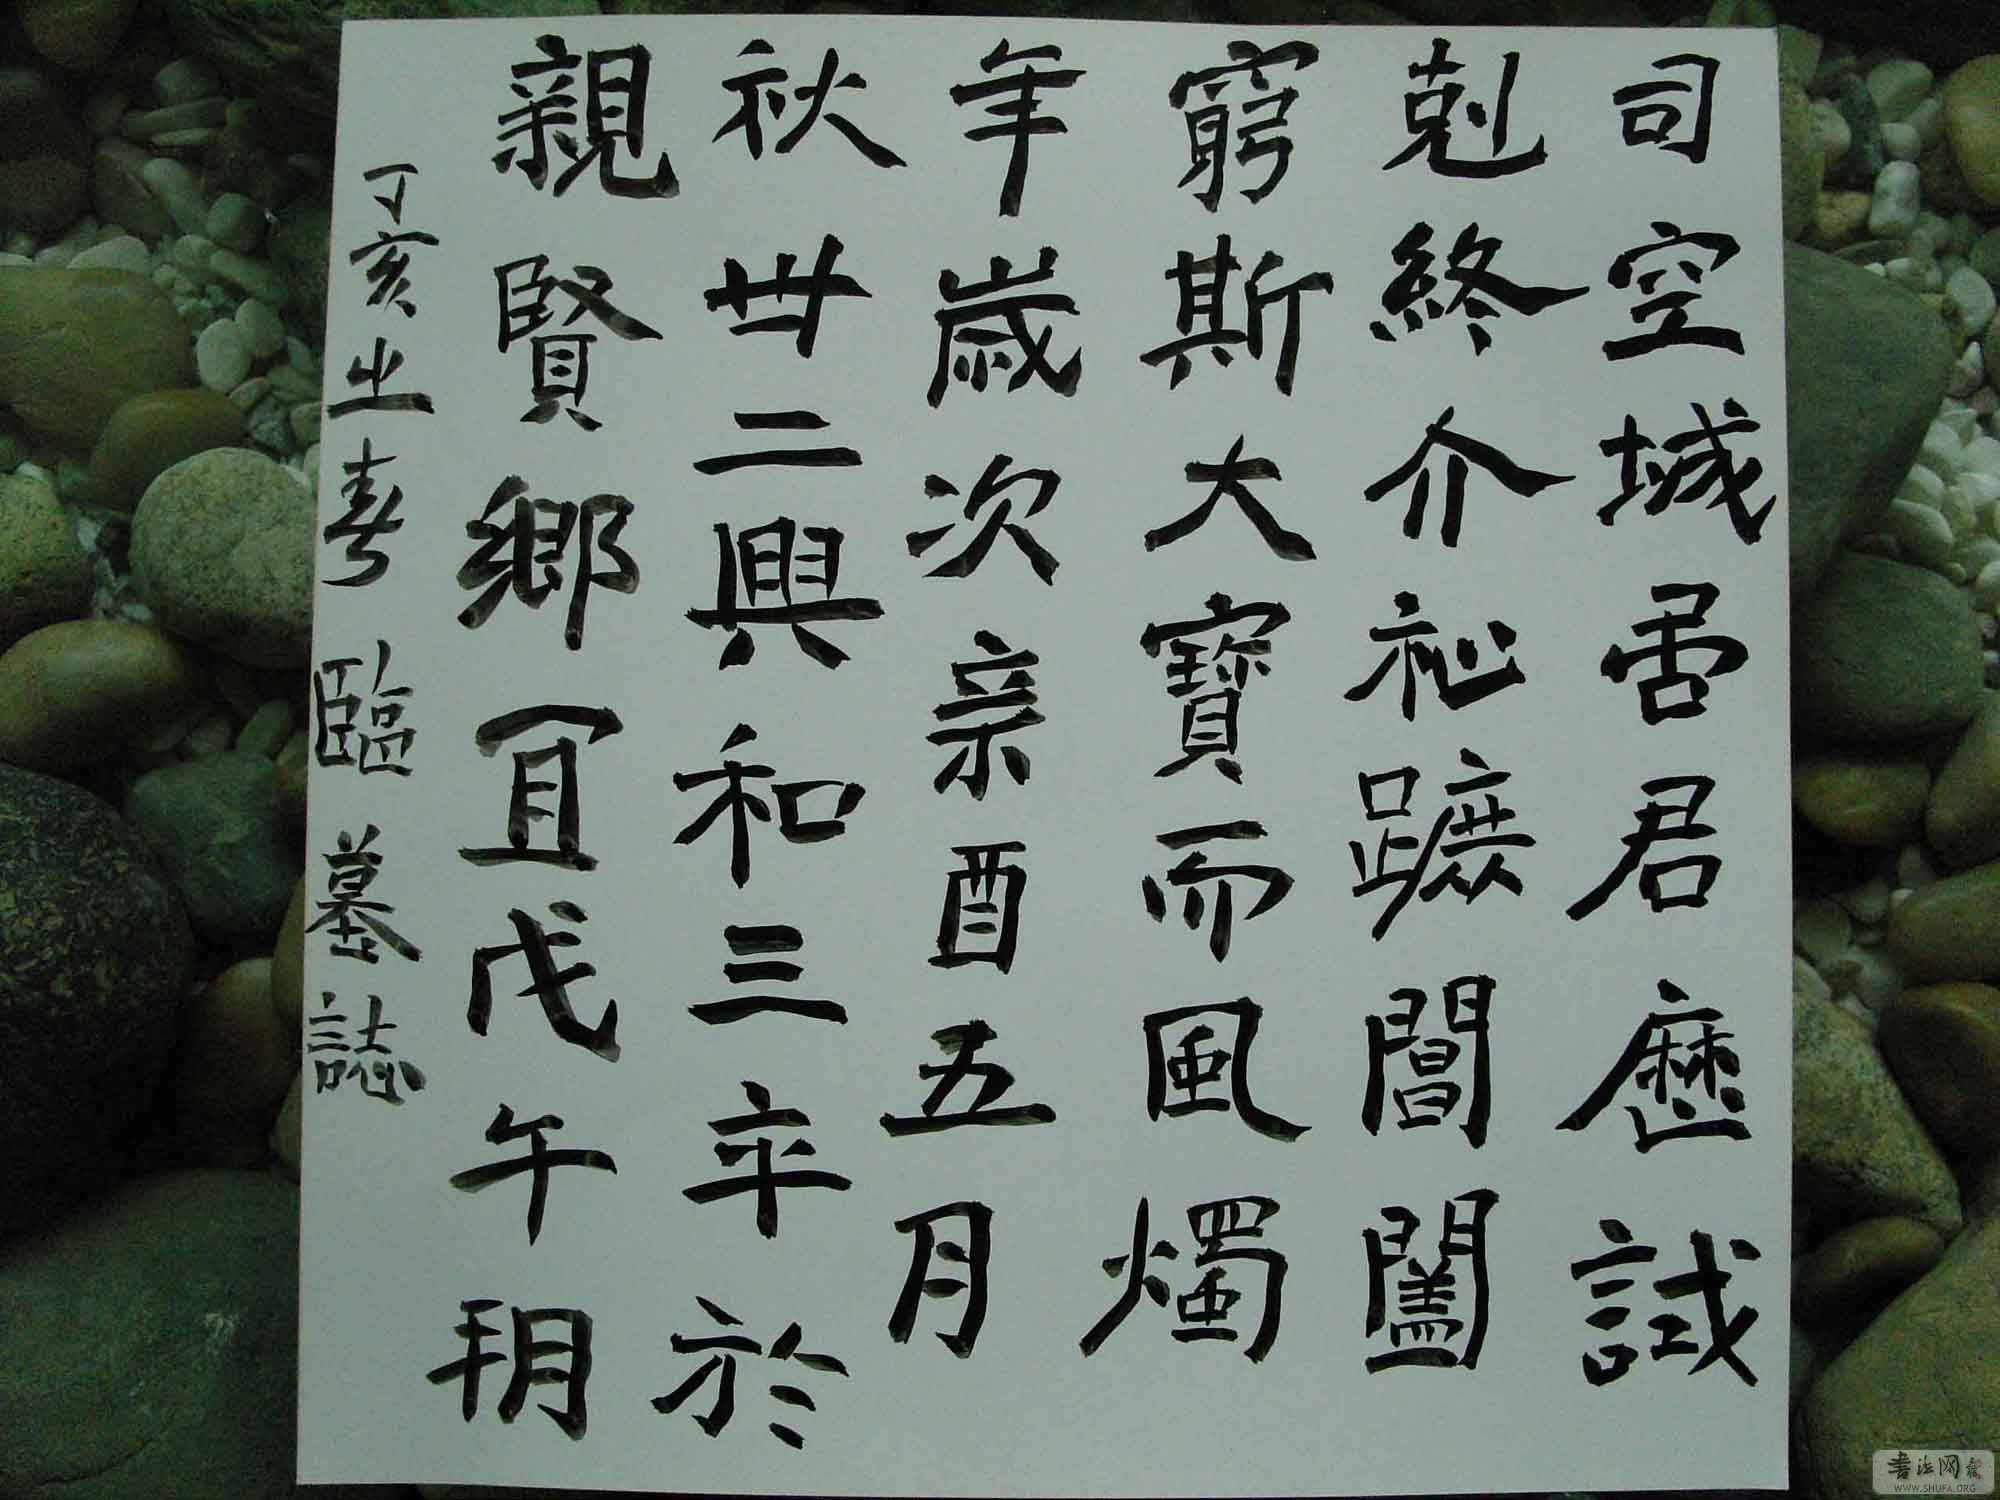 司空城局君歷試
剋終介祉蹠閶闔
窮斯大寶而風燭
年歲次亲酉五月
秋卅二興和三卒於
親賢鄉宜戊午玥
丁亥之春臨墓誌
书法网
WWW.SHUFA.ORG